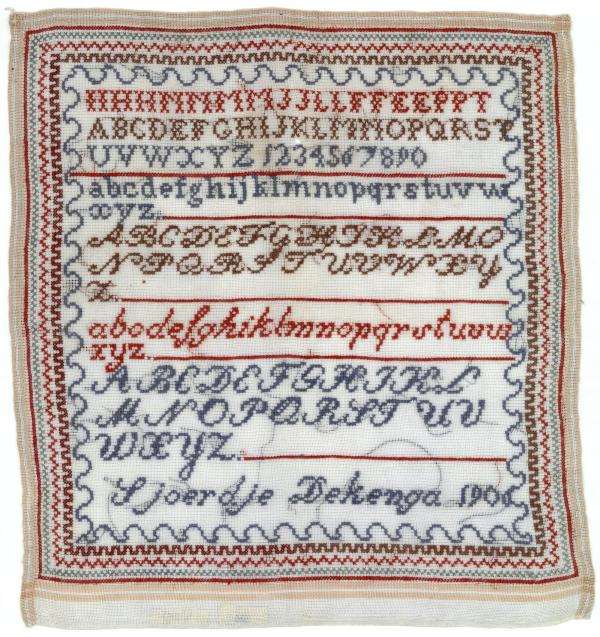 HHHMMMMMIJJLLFFEEPPT
ABCDEFGHIJKLMNOPQRST
UVWXYZ 1234567890
abcdefghijklmnopqrstuvw
xyz.
ABCDEFGHIKLMO
NPQRSTUVWXY
Z.
abcdefghiklmnopqrstuvw
xyz.
ABCDEFGHIKL
MNOPQRSTUV
WXYZ.
Sjoerdje Dekenga 1906